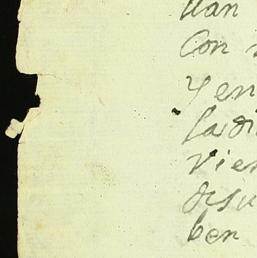 Uan
Con
yen
la di
vien
disu
ben